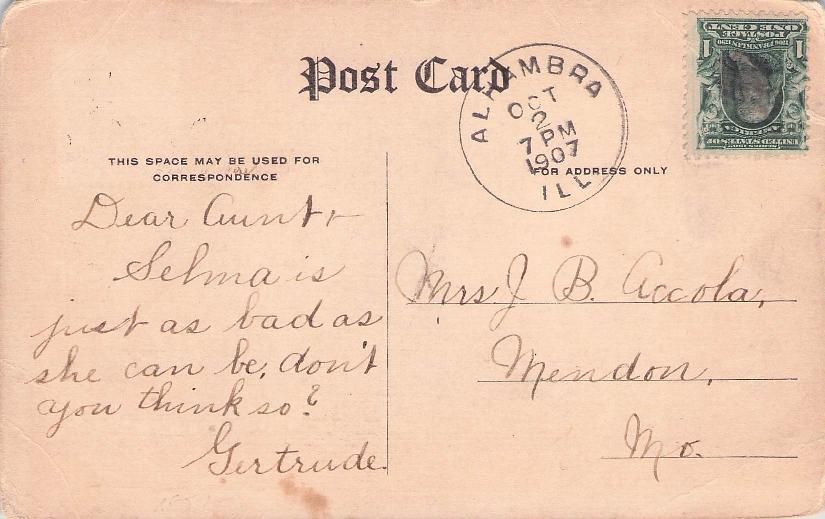 Post Card
THIS SPACE MAY BE USED FOR
CORRESPONDENCE
FOR ADDRESS ONLY
ALHAMBRA
OCT
2
7 PM
1907
ILL
POSTAGE
ONE CENT
1 1
FRANKLIN
UNITED STATES OF
AMERICA
Dear Aunt
Selma is
just as bad as
she can be, don't
you think so?
Gertrude.
Mrs. J B. Accola,
Mendon,
Mo.